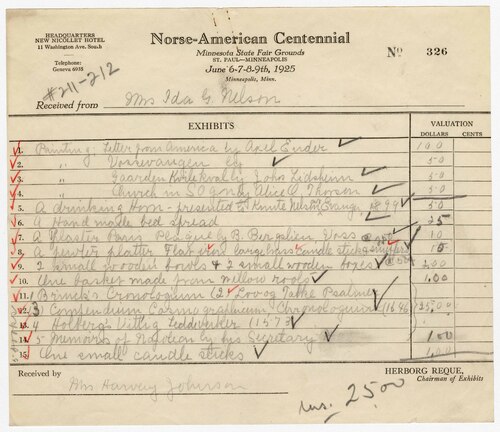 HEADQUARTERS
NEW NICOLLET HOTEL
11 Washington Ave. South
Telephone:
Geneva 6935
Norse-American Centennial
Minnesota State Fair Grounds
ST. PAUL—MINNEAPOLIS
June 6-7-8-9th, 1925
Minneapolis, Minn.
No 326
#211-212
Received from Mrs Ida G. Nelson
EXHIBITS
VALUATION
DOLLARS CENTS
1. Painting: Letter from America by Axel Ender 100
2. " Vossevangen by 50
3. " Gaarden Kvilekval by John Lidsheim 50
4. " Church in by Alice C. Thorson 50
5. A drinking Horn - presented to Knute Nelson, 1894 50
6. A Hand made bed spread 25
7. A Plaster Paris Plaque by B. Bergslien, Voss 10
8. A pewter platter Flat iron candle sticks 15
9. 2 small wooden bowls & 2 small wooden boxes 2.00
10. One basket made from willow roots 1.00
11. 1 Cronologium (2)
12. (3) Compendium Cosmographicum (1646) 25.00
13. 4 Holberg's
14. 5 Memoirs of Napoleon by his Secretary 1.00
15. One small candle sticks 1.00
Received by Mrs Harvey Johnson
HERBORG REQUE,
Chairman of Exhibits
ins. 2500